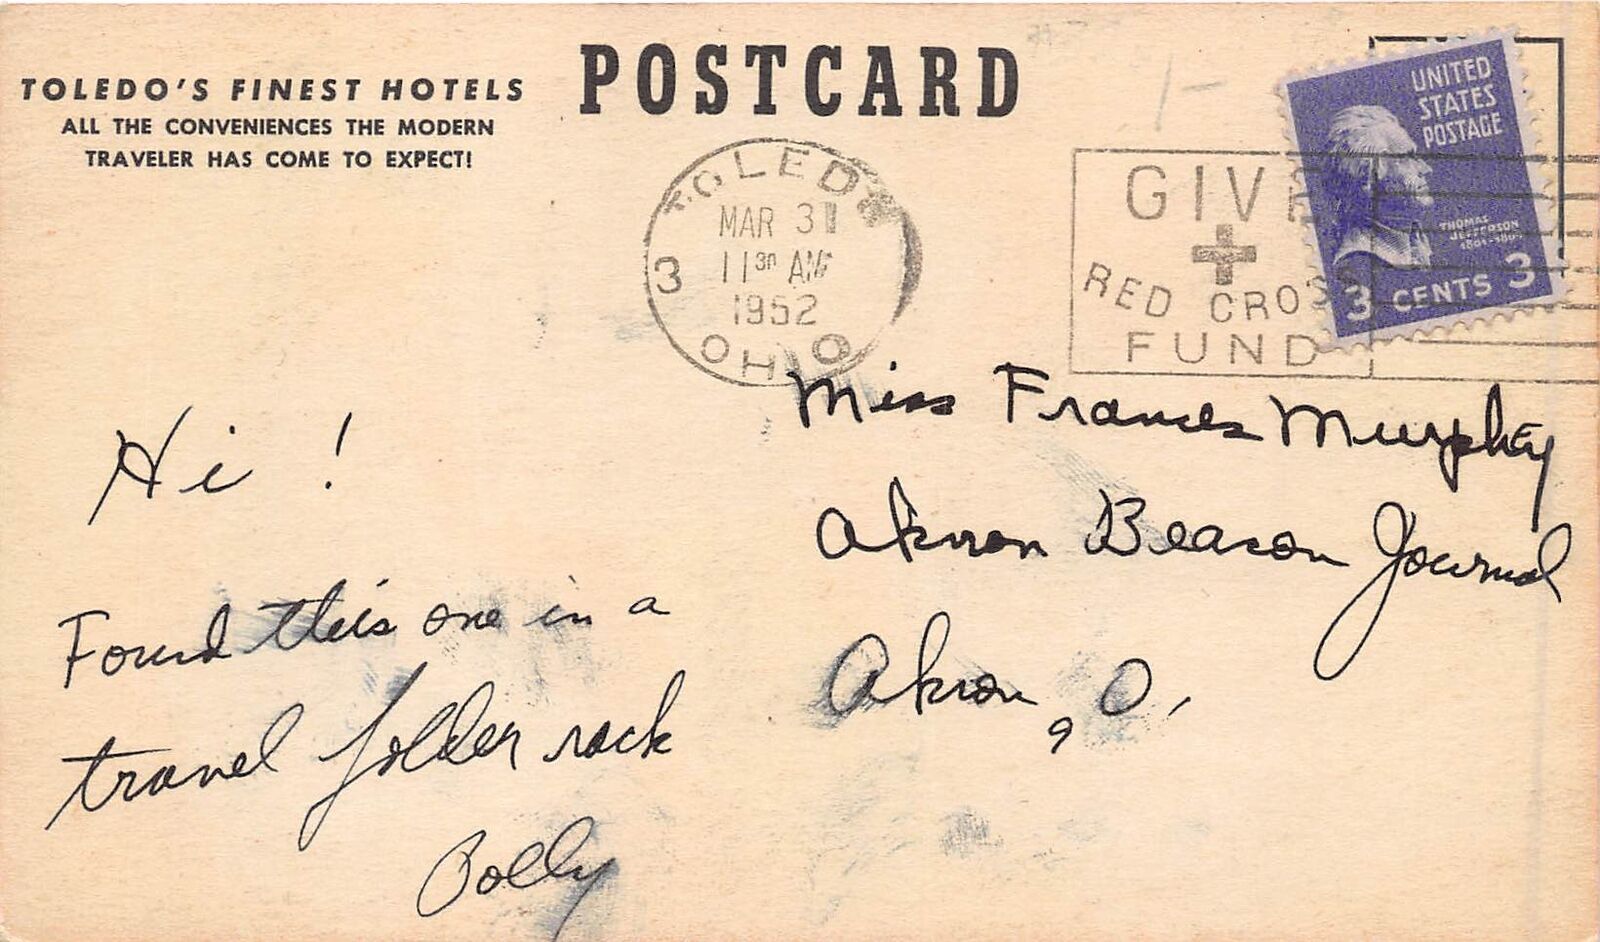 POSTCARD
TOLEDO'S FINEST HOTELS
ALL THE CONVENIENCES THE MODERN
TRAVELER HAS COME TO EXPECT!
TOLEDO
MAR 31
11 30 AM
1952
3
OHIO
GIVE
RED CROSS
FUND
UNITED
STATES
POSTAGE
THOMAS
JEFFERSON
3 CENTS 3
Hi !
Found this one in a
travel folder rack
Polly
Miss Frances Murphey
Akron Beacon Journal
Akron 9, O.